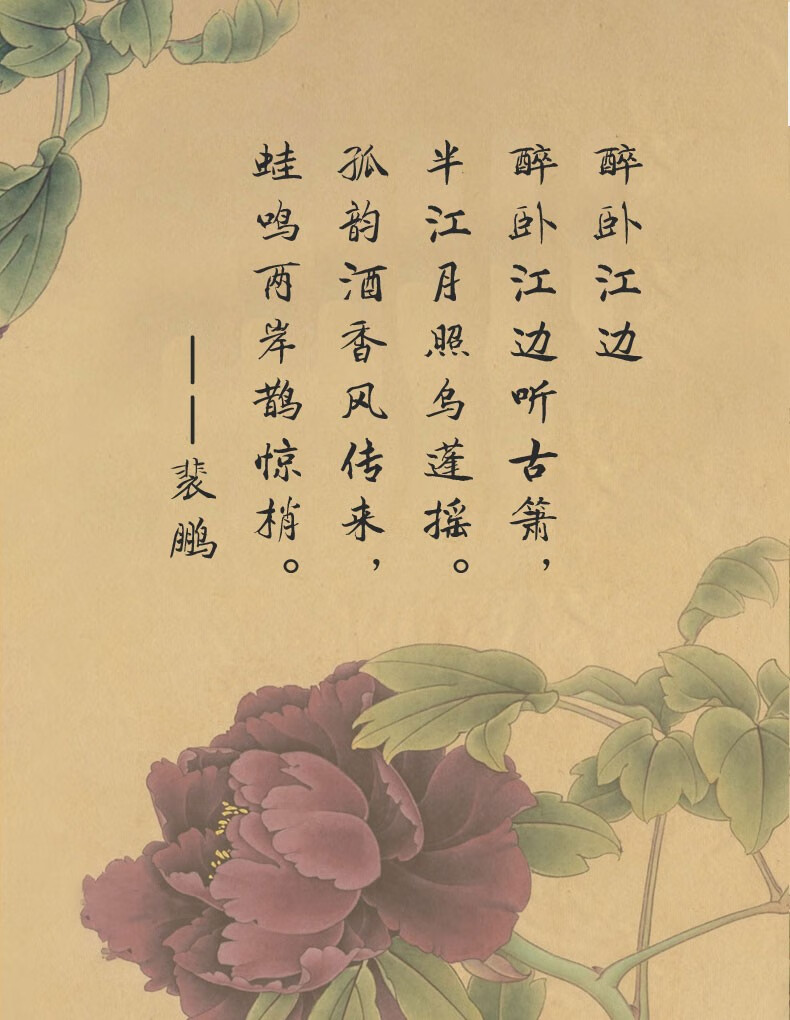 醉卧江边
醉卧江边听古箫，
半江月照乌蓬摇。
孤韵酒香风传来，
蛙鸣两岸鹊惊梢。
——裴鹏